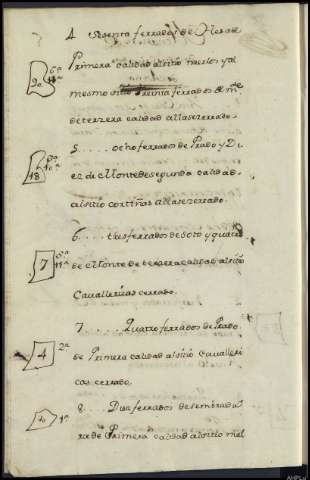 4 Sesenta ferrados de
Primera calidad al sitio
mesmo sitio treinta ferrados de m.te
de terzera calidad allase zerrado.
5..... ocho ferrados de Prado y Di
ez de Monte de segunda calidad
al sitio cortiñas allase zerrado.
6.... tres ferrados de Soto y quatro
de Monte de terzera calidad al sitio
Cavallerizas cerrado.
7..... Quatro ferrados de Prado
de Primera calidad al sitio Cavalleri
zas cerrado.
8... Dos ferrados de sembradu
ra de Primera calidad al sitio
18
7
4
2ª